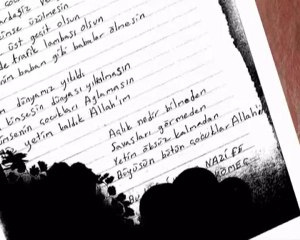 üzülmesin
üst geçit olsun
de trafik lambası olsun
baban gibi babalar ölmesin
dünyamız yıkıldı
kimsenin dünyası yıkılmasın
kimsenin çocukları Ağlamasın
yetim kaldık Allah'ım
Açlık nedir bilmeden
Savaşları görmeden
Yetim öksüz kalmadan
Büyüsün bütün çocuklar Allah'ım